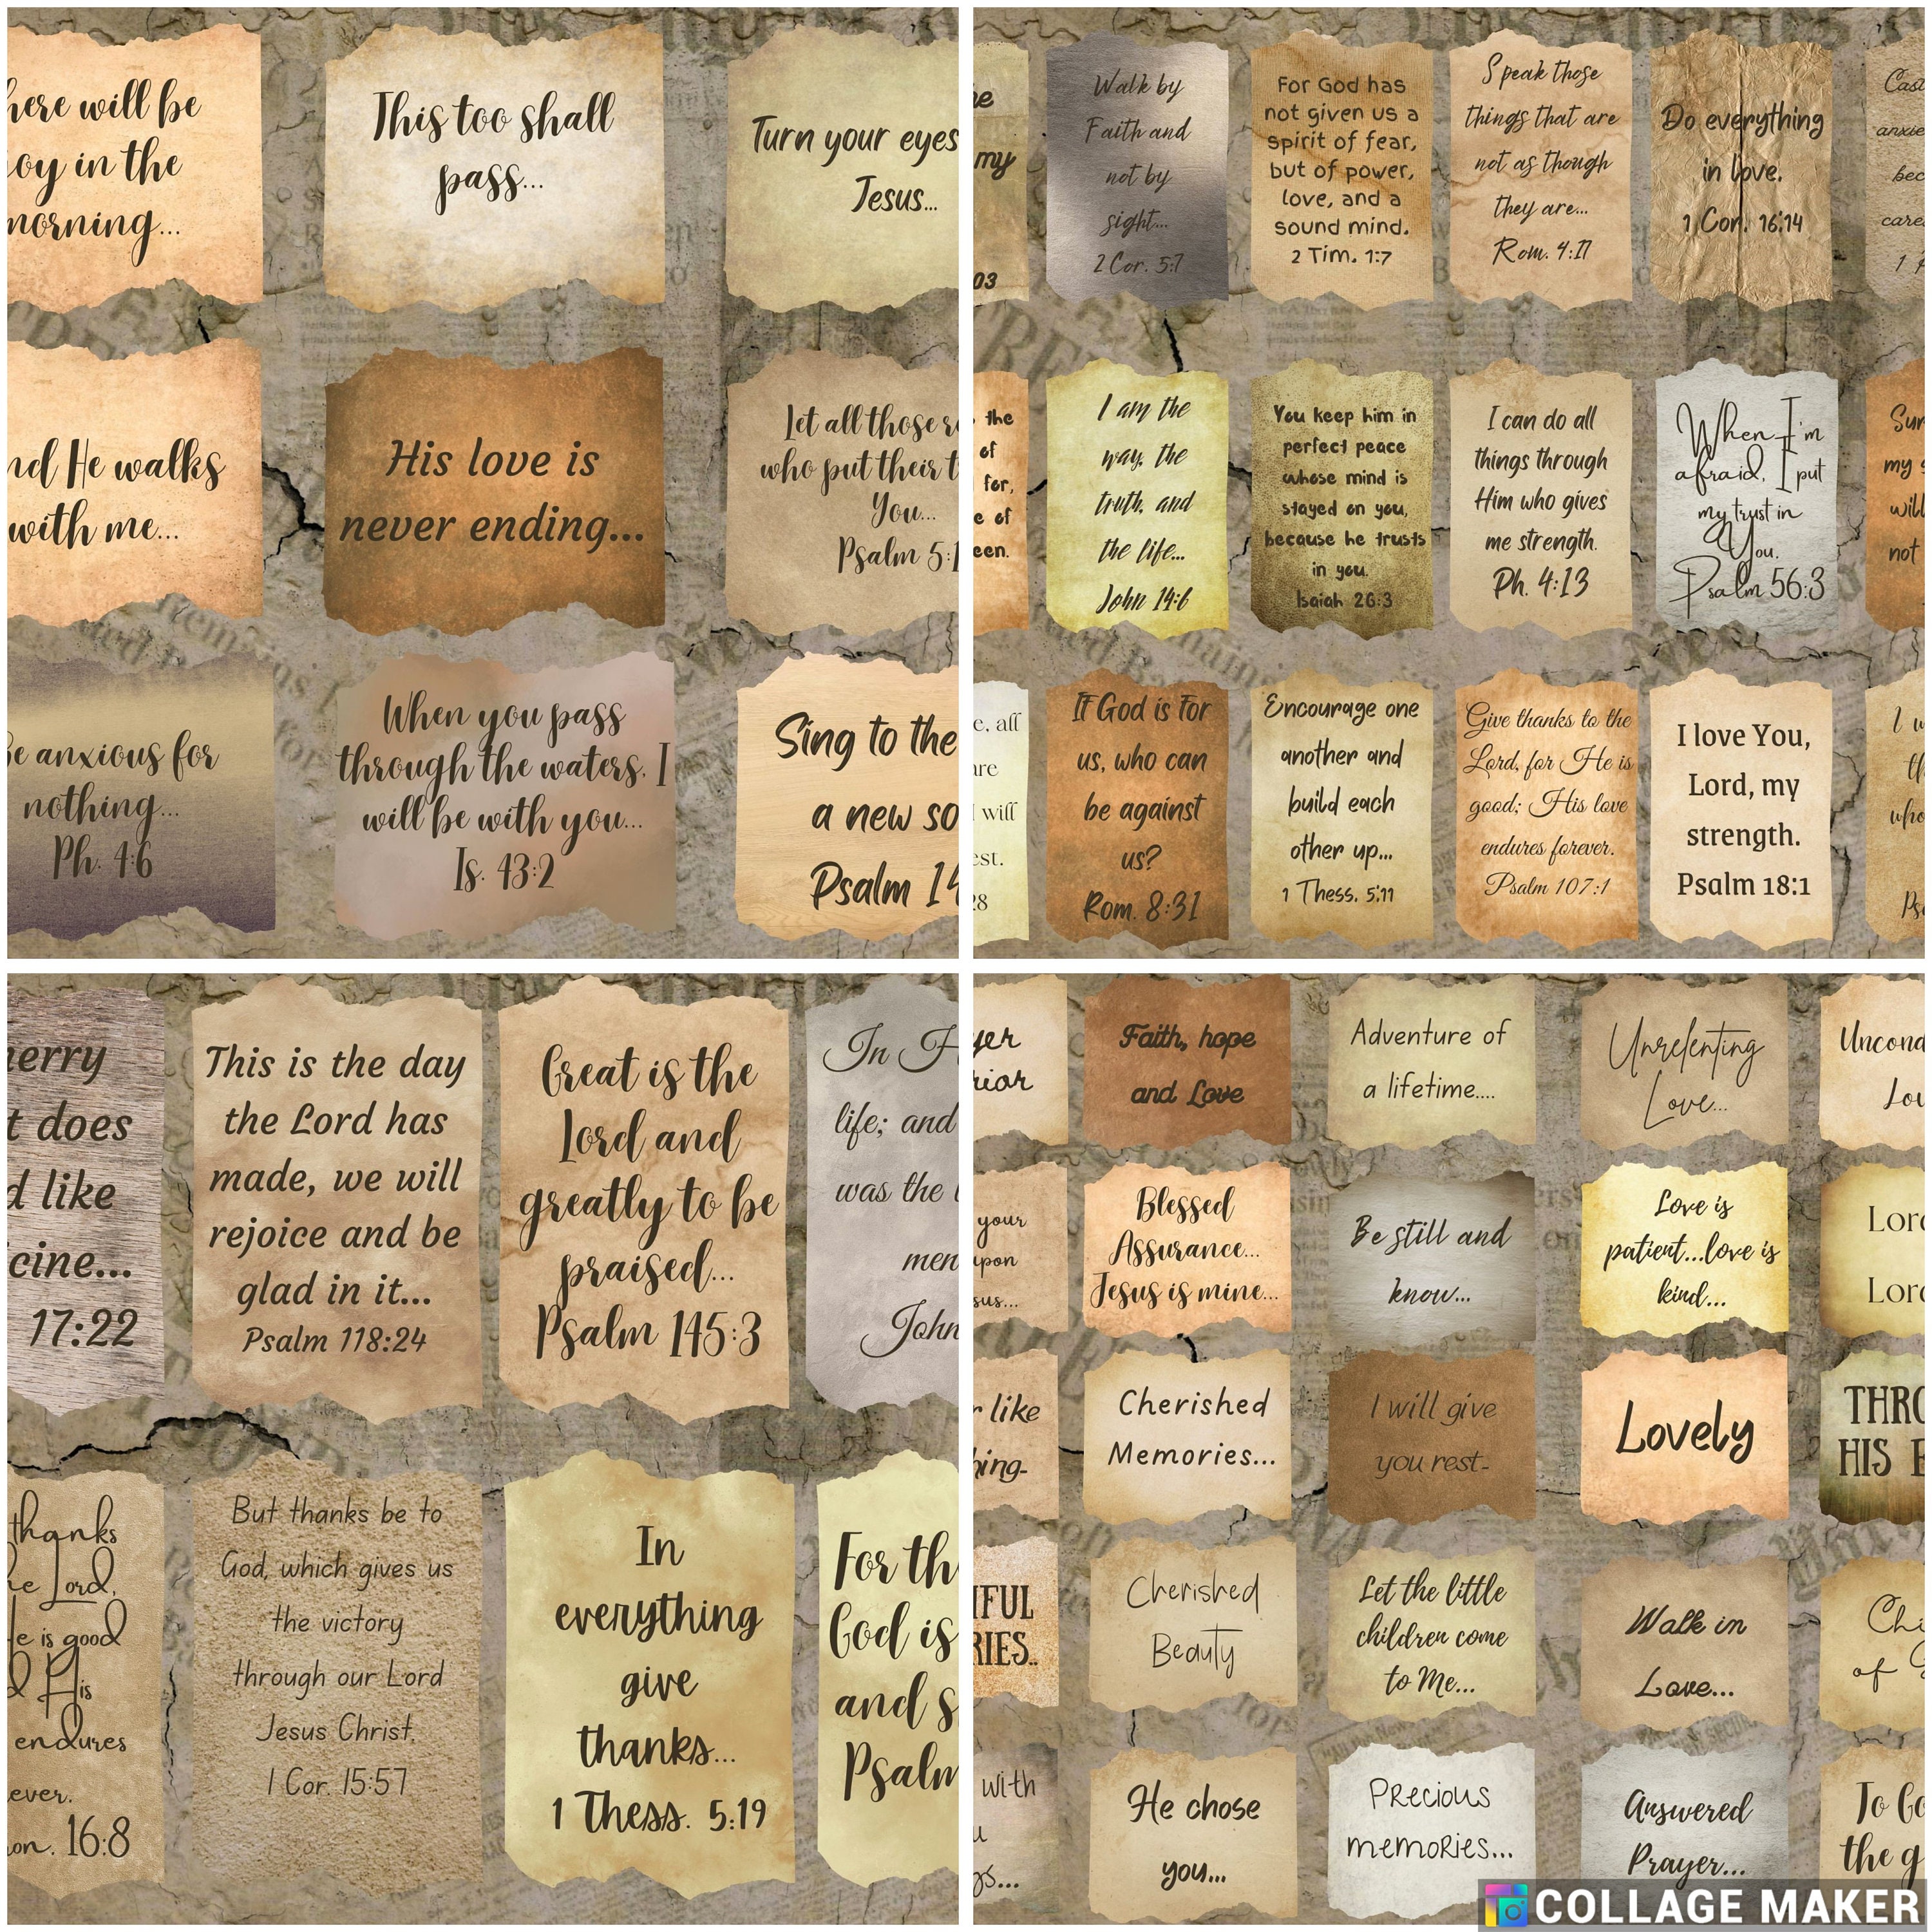 here will be
oy in the
morning...
This too shall
pass...
Turn your eyes
Jesus...
nd He walks
with me...
His love is
never ending...
Let all those
who put their t
You...
Psalm 5:1
Be anxious for
nothing...
Ph. 4:6
When you pass
through the waters, I
will be with you...
Is. 43:2
Sing to the
a new so
Psalm 14
he
my
03
Walk by
Faith and
not by
sight...
2 Cor. 5:7
For God has
not given us a
spirit of fear,
but of power,
love, and a
sound mind.
2 Tim. 1:7
Speak those
things that are
not as though
they are...
Rom. 4:17
Do everything
in love.
1 Cor. 16:14
Cast
anxie
bec
care
1 P
the
of
for,
e of
een.
I am the
way, the
truth, and
the life...
John 14:6
You keep him in
perfect peace
whose mind is
stayed on you,
because he trusts
in you.
Isaiah 26:3
I can do all
things through
Him who gives
me strength.
Ph. 4:13
When I'm
afraid, I put
my trust in
You.
Psalm 56:3
Sur
my
will
not
e, all
are
I will
est.
28
If God is for
us, who can
be against
us?
Rom. 8:31
Encourage one
another and
build each
other up...
1 Thess. 5:11
Give thanks to the
Lord, for He is
good; His love
endures forever.
Psalm 107:1
I love You,
Lord, my
strength.
Psalm 18:1
I w
th
who
Ps
erry
t does
d like
cine...
17:22
This is the day
the Lord has
made, we will
rejoice and be
glad in it...
Psalm 118:24
Great is the
Lord and
greatly to be
praised...
Psalm 145:3
In H
life; and
was the l
men
John
thanks
he Lord,
He is good
d His
endures
ever.
on. 16:8
But thanks be to
God, which gives us
the victory
through our Lord
Jesus Christ.
1 Cor. 15:57
In
everything
give
thanks...
1 Thess. 5:19
For th
God is
and s
Psalm
yer
rior
Faith, hope
and Love
Adventure of
a lifetime....
Unrelenting
Love...
Uncond
Lov
your
upon
sus...
Blessed
Assurance...
Jesus is mine...
Be still and
know...
Love is
patient...love is
kind...
Lord
Lord
r like
hing-
Cherished
Memories...
I will give
you rest-
Lovely
THRO
HIS E
IFUL
RIES..
Cherished
Beauty
Let the little
children come
to Me...
Walk in
Love...
Chi
of G
with
u
gs...
He chose
you...
Precious
memories...
Answered
Prayer...
To Go
the g
COLLAGE MAKER